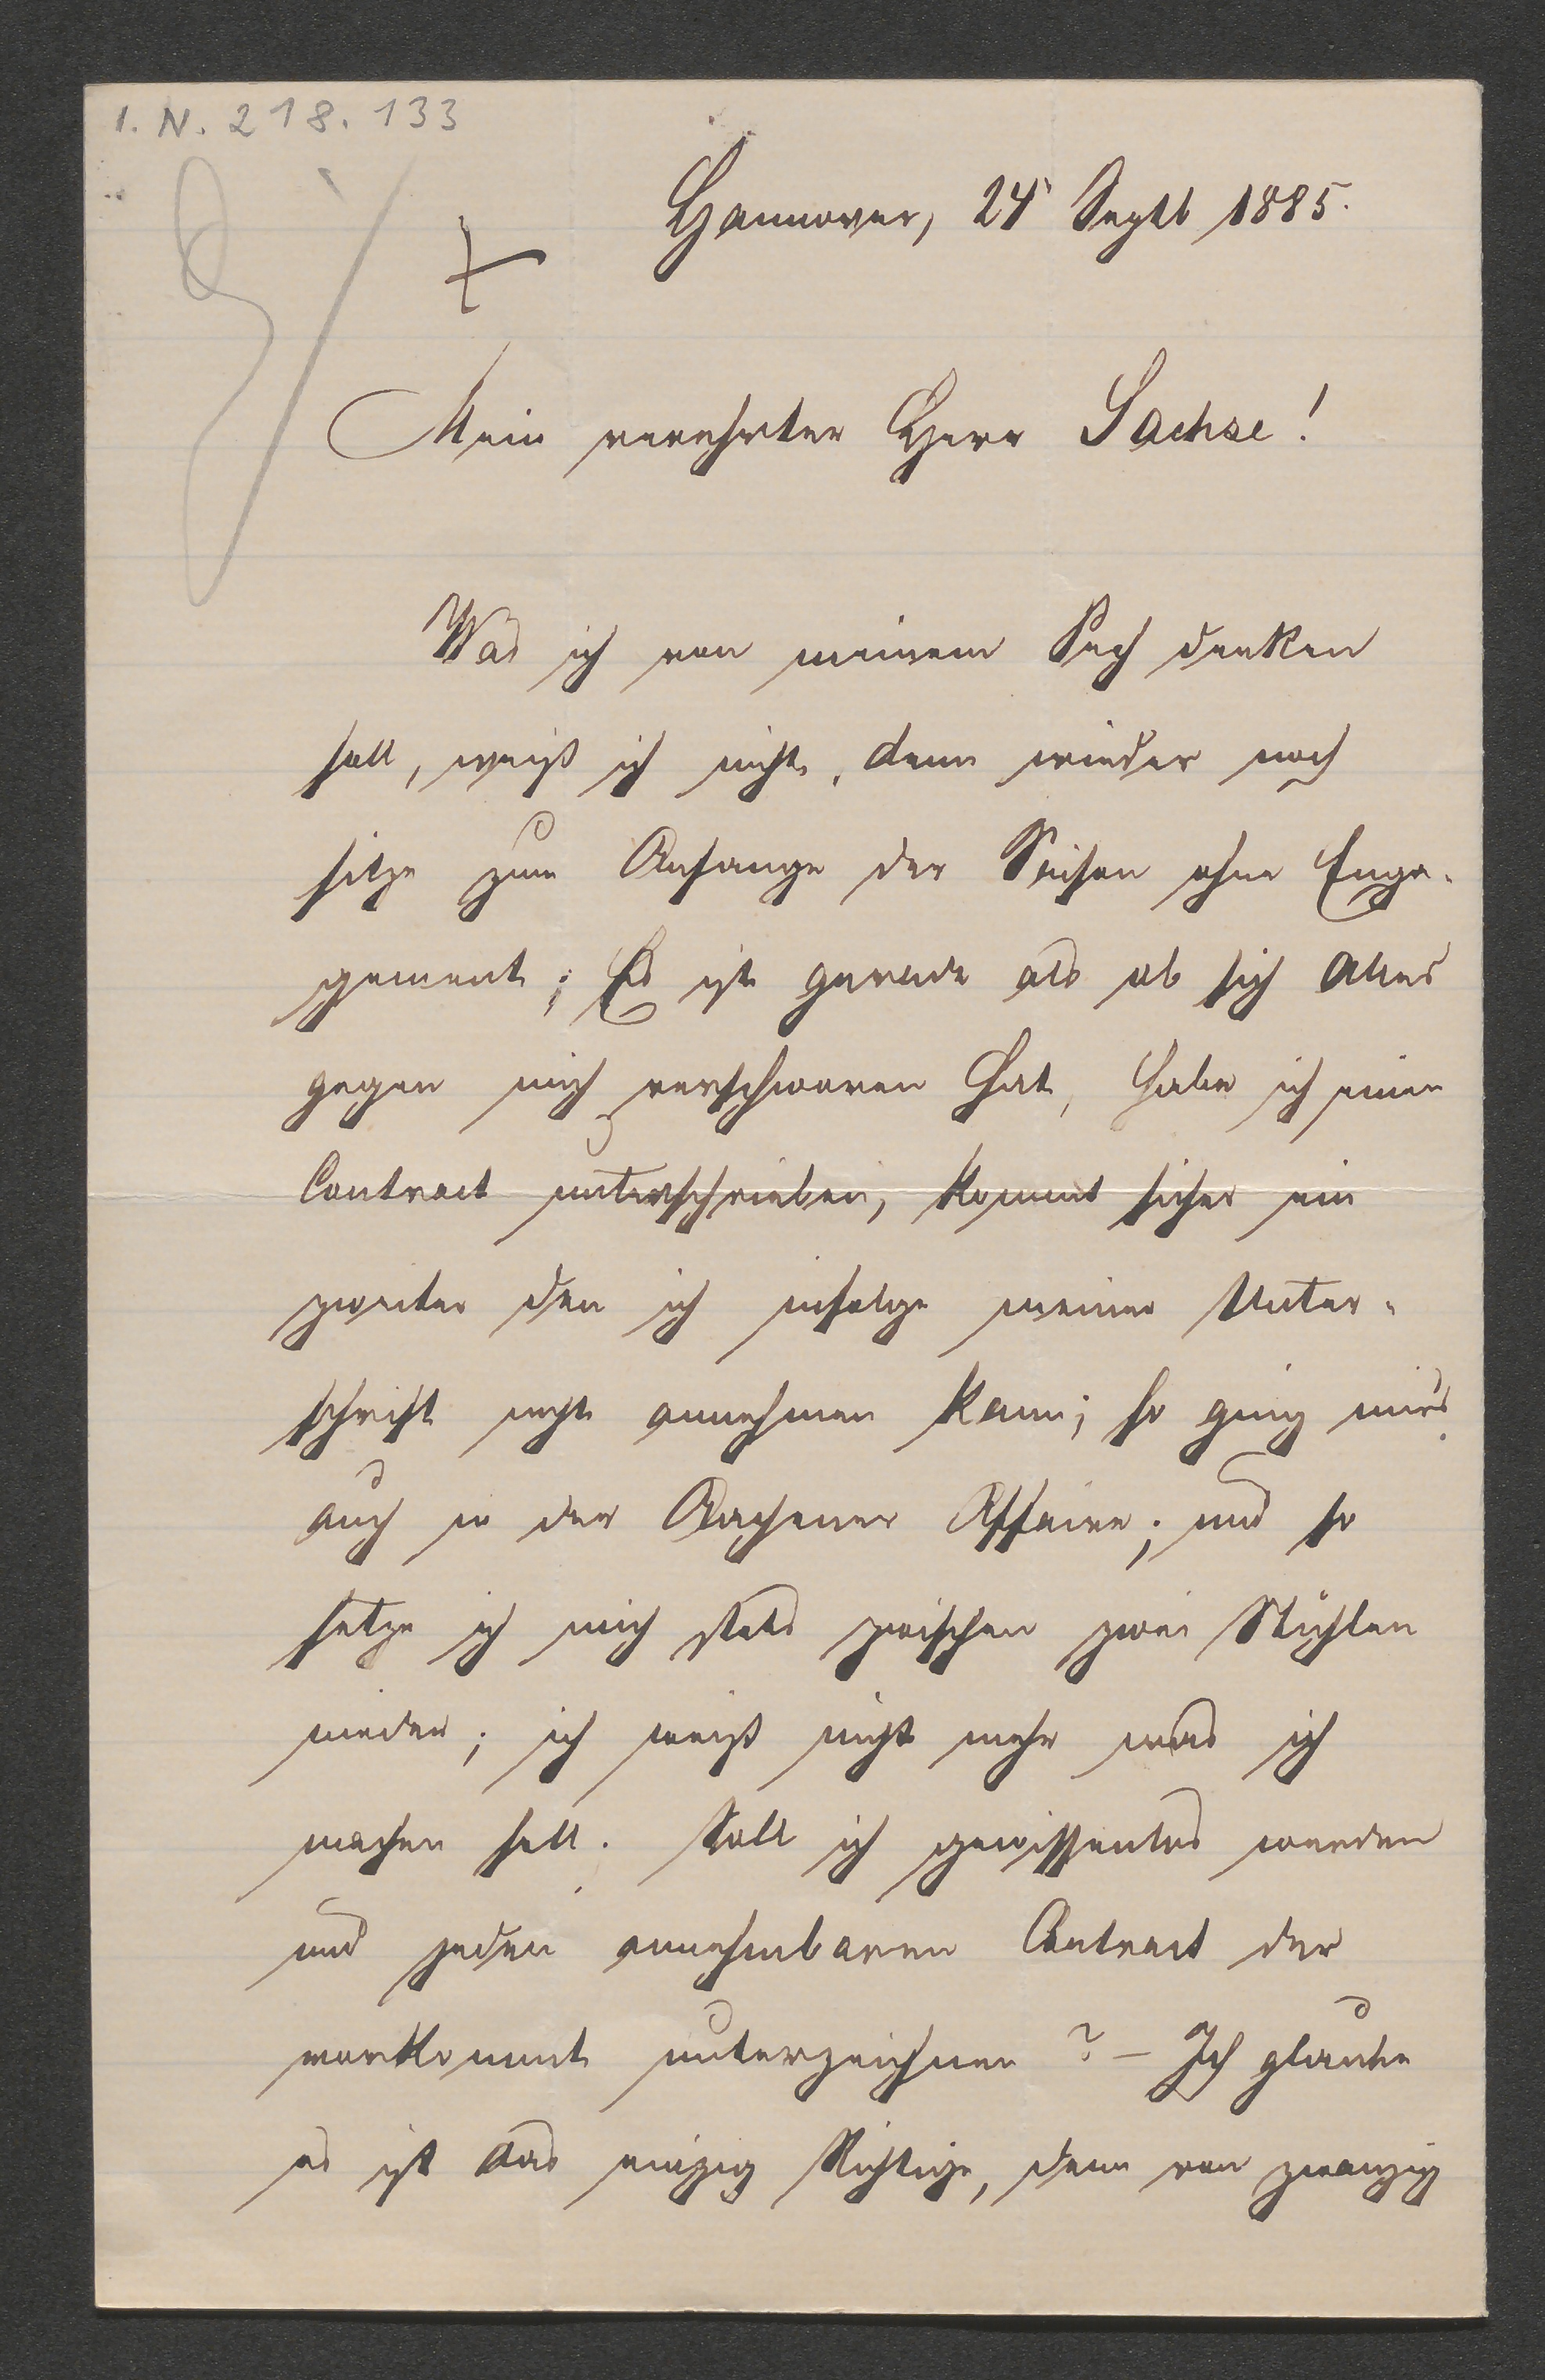 I.N. 218.133
Hannover, 24 Septb 1885.
Mein verehrter Herr Sachse!
Was ich von meinem Pech denken
soll, weiß ich nicht, denn wieder noch
sitze zum Anfange der Saison ohne Enga-
gement; Es ist gerade als ob sich Alles
gegen mich verschworen hat, habe ich einen
Contract unterschrieben, kommt sicher ein
zweiter den ich infolge meiner Unter-
schrift nicht annehmen kann; so ging mir's
auch in der Aachener Affaire; und so
setze ich mich stets zwischen zwei Stühlen
nieder; ich weiß nicht mehr was ich
machen soll. Soll ich gewissenlos werden
und jeden annehmbaren Contract der
vorkommt unterzeichnen? – Ich glaube
es ist das einzig Richtige, denn von zwanzig